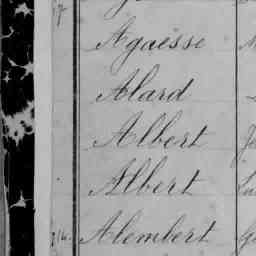 Agaësse
Alard
Albert
Albert
Alembert